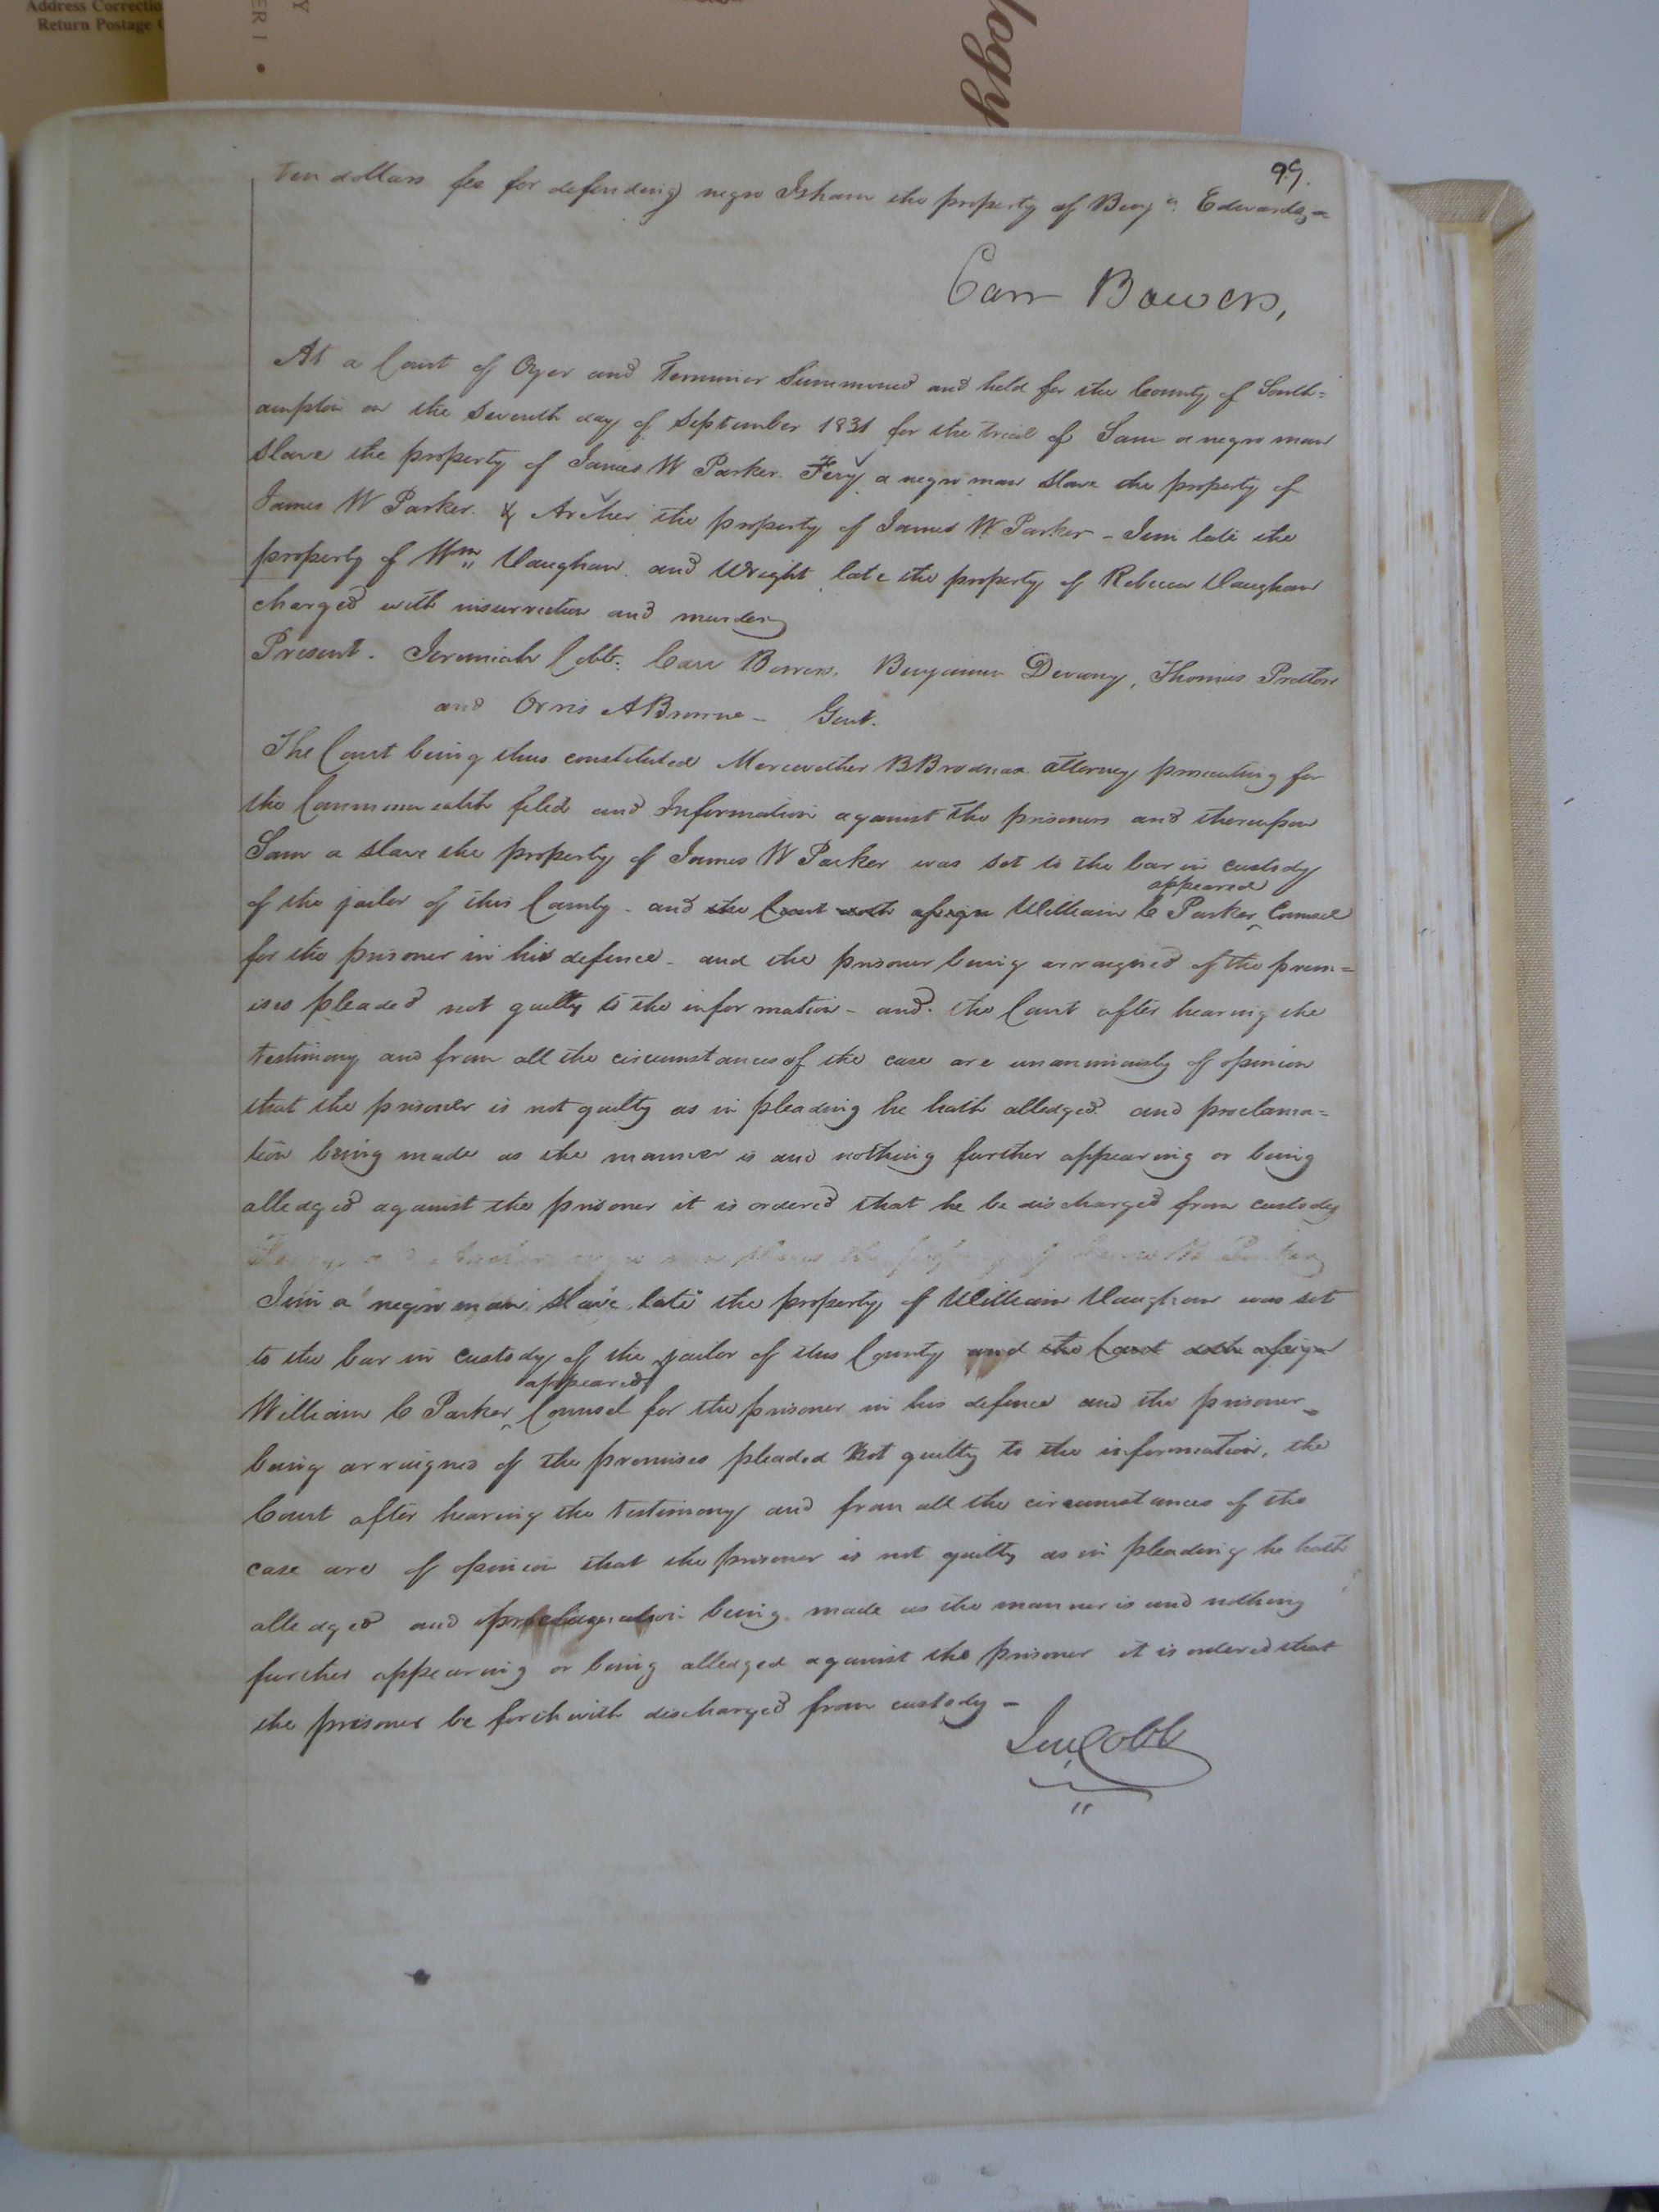 Address Correctio
Return Postage
Y
ER 1 •
logy
99.
ten dollars fee for defending negro Isham the property of Benjn. Edwards –
Carr Bowers,
At a Court of Oyer and Terminer Summoned and held for the County of South=
ampton on the Seventh day of September 1831 for the trial of Sam a negro man
slave the property of James W Parker. Fery a negro man slave the property of
James W Parker. & Archer the property of James W. Parker – Jim late the
property of Wm Vaughan. and Wright late the property of Rebecca Vaughan
charged with insurrection and murder
Present. Jeremiah Cobb. Carr Bowers. Benjamin Devany, Thomas Pretlow
and Orris A Browne – Gent.
The Court being thus constituted Merewether B Brodnax attorney prosecuting for
the Commonwealth filed and Information against the prisoners and thereupon
Sam a slave the property of James W Parker was set to the bar in custody
of the jailor of this County – and the Court doth assign William C Parker appeared Counsel
for the prisoner in his defence – and the prisoner being arraigned of the prem=
ises pleaded not guilty to the information – and the Court after hearing the
testimony and from all the circumstances of the case are unanimously of opinion
that the prisoner is not guilty as in pleading he hath alledged. and proclama=
tion being made as the manner is and nothing further appearing or being
alledged against the prisoner it is ordered that he be discharged from custody
Jim a negro man slave late the property of William Vaughan was set
to the bar in custody of the jailor of this County and the Court doth assign
William C Parker appeared Counsel for the prisoner in his defence and the prisoner
being arraigned of the premises pleaded not guilty to the information, the
Court after hearing the testimony and from all the circumstances of the
case are of opinion that the prisoner is not guilty as in pleading he hath
alledged and proclamation being made as the manner is and nothing
further appearing or being alledged against the prisoner it is ordered that
the prisoner be forthwith discharged from custody –
Jer. Cobb